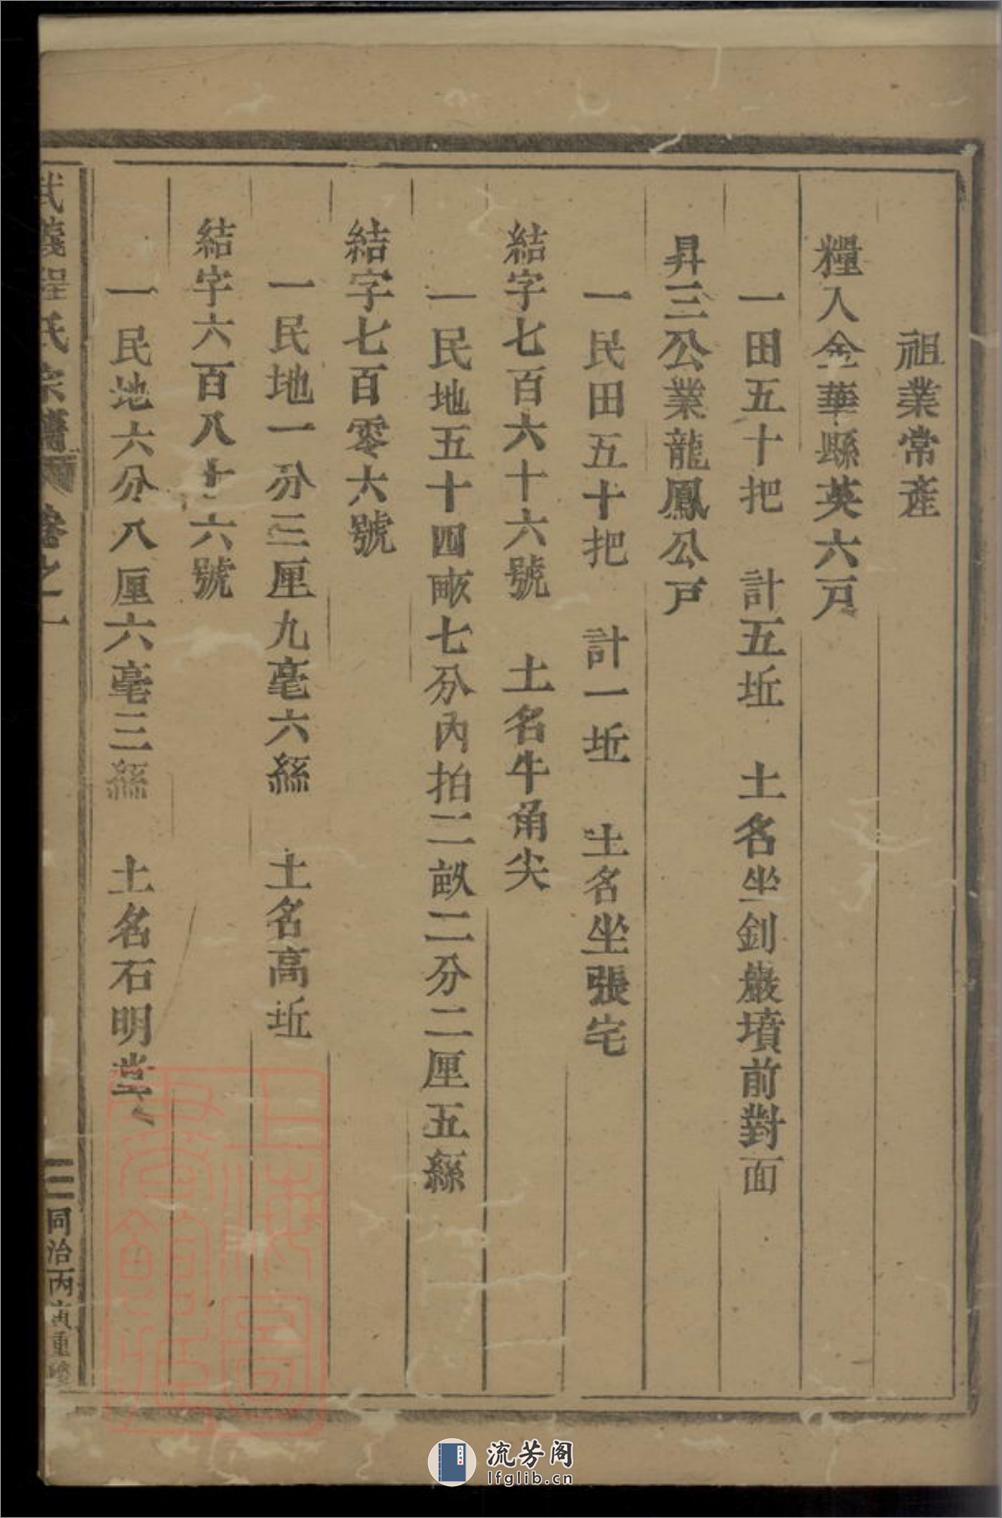 祖業常產
糧入金華縣英六戶
一田五十把　計五坵　土名坐釗巖墳前對面
昇三公業龍鳳公戶
一民田五十把　計一坵　土名坐張宅
結字七百六十六號　土名牛角尖
一民地五十四畝七分內拍二畝二分二厘五絲
結字七百零六號
一民地一分三厘九毫六絲　土名高坵
結字六百八十六號
一民地六分八厘六毫三絲　土名石明堂
武義程氏宗譜　卷之一　二　同治丙寅重鐫
上海圖書館藏
流芳阁
lfglib.cn